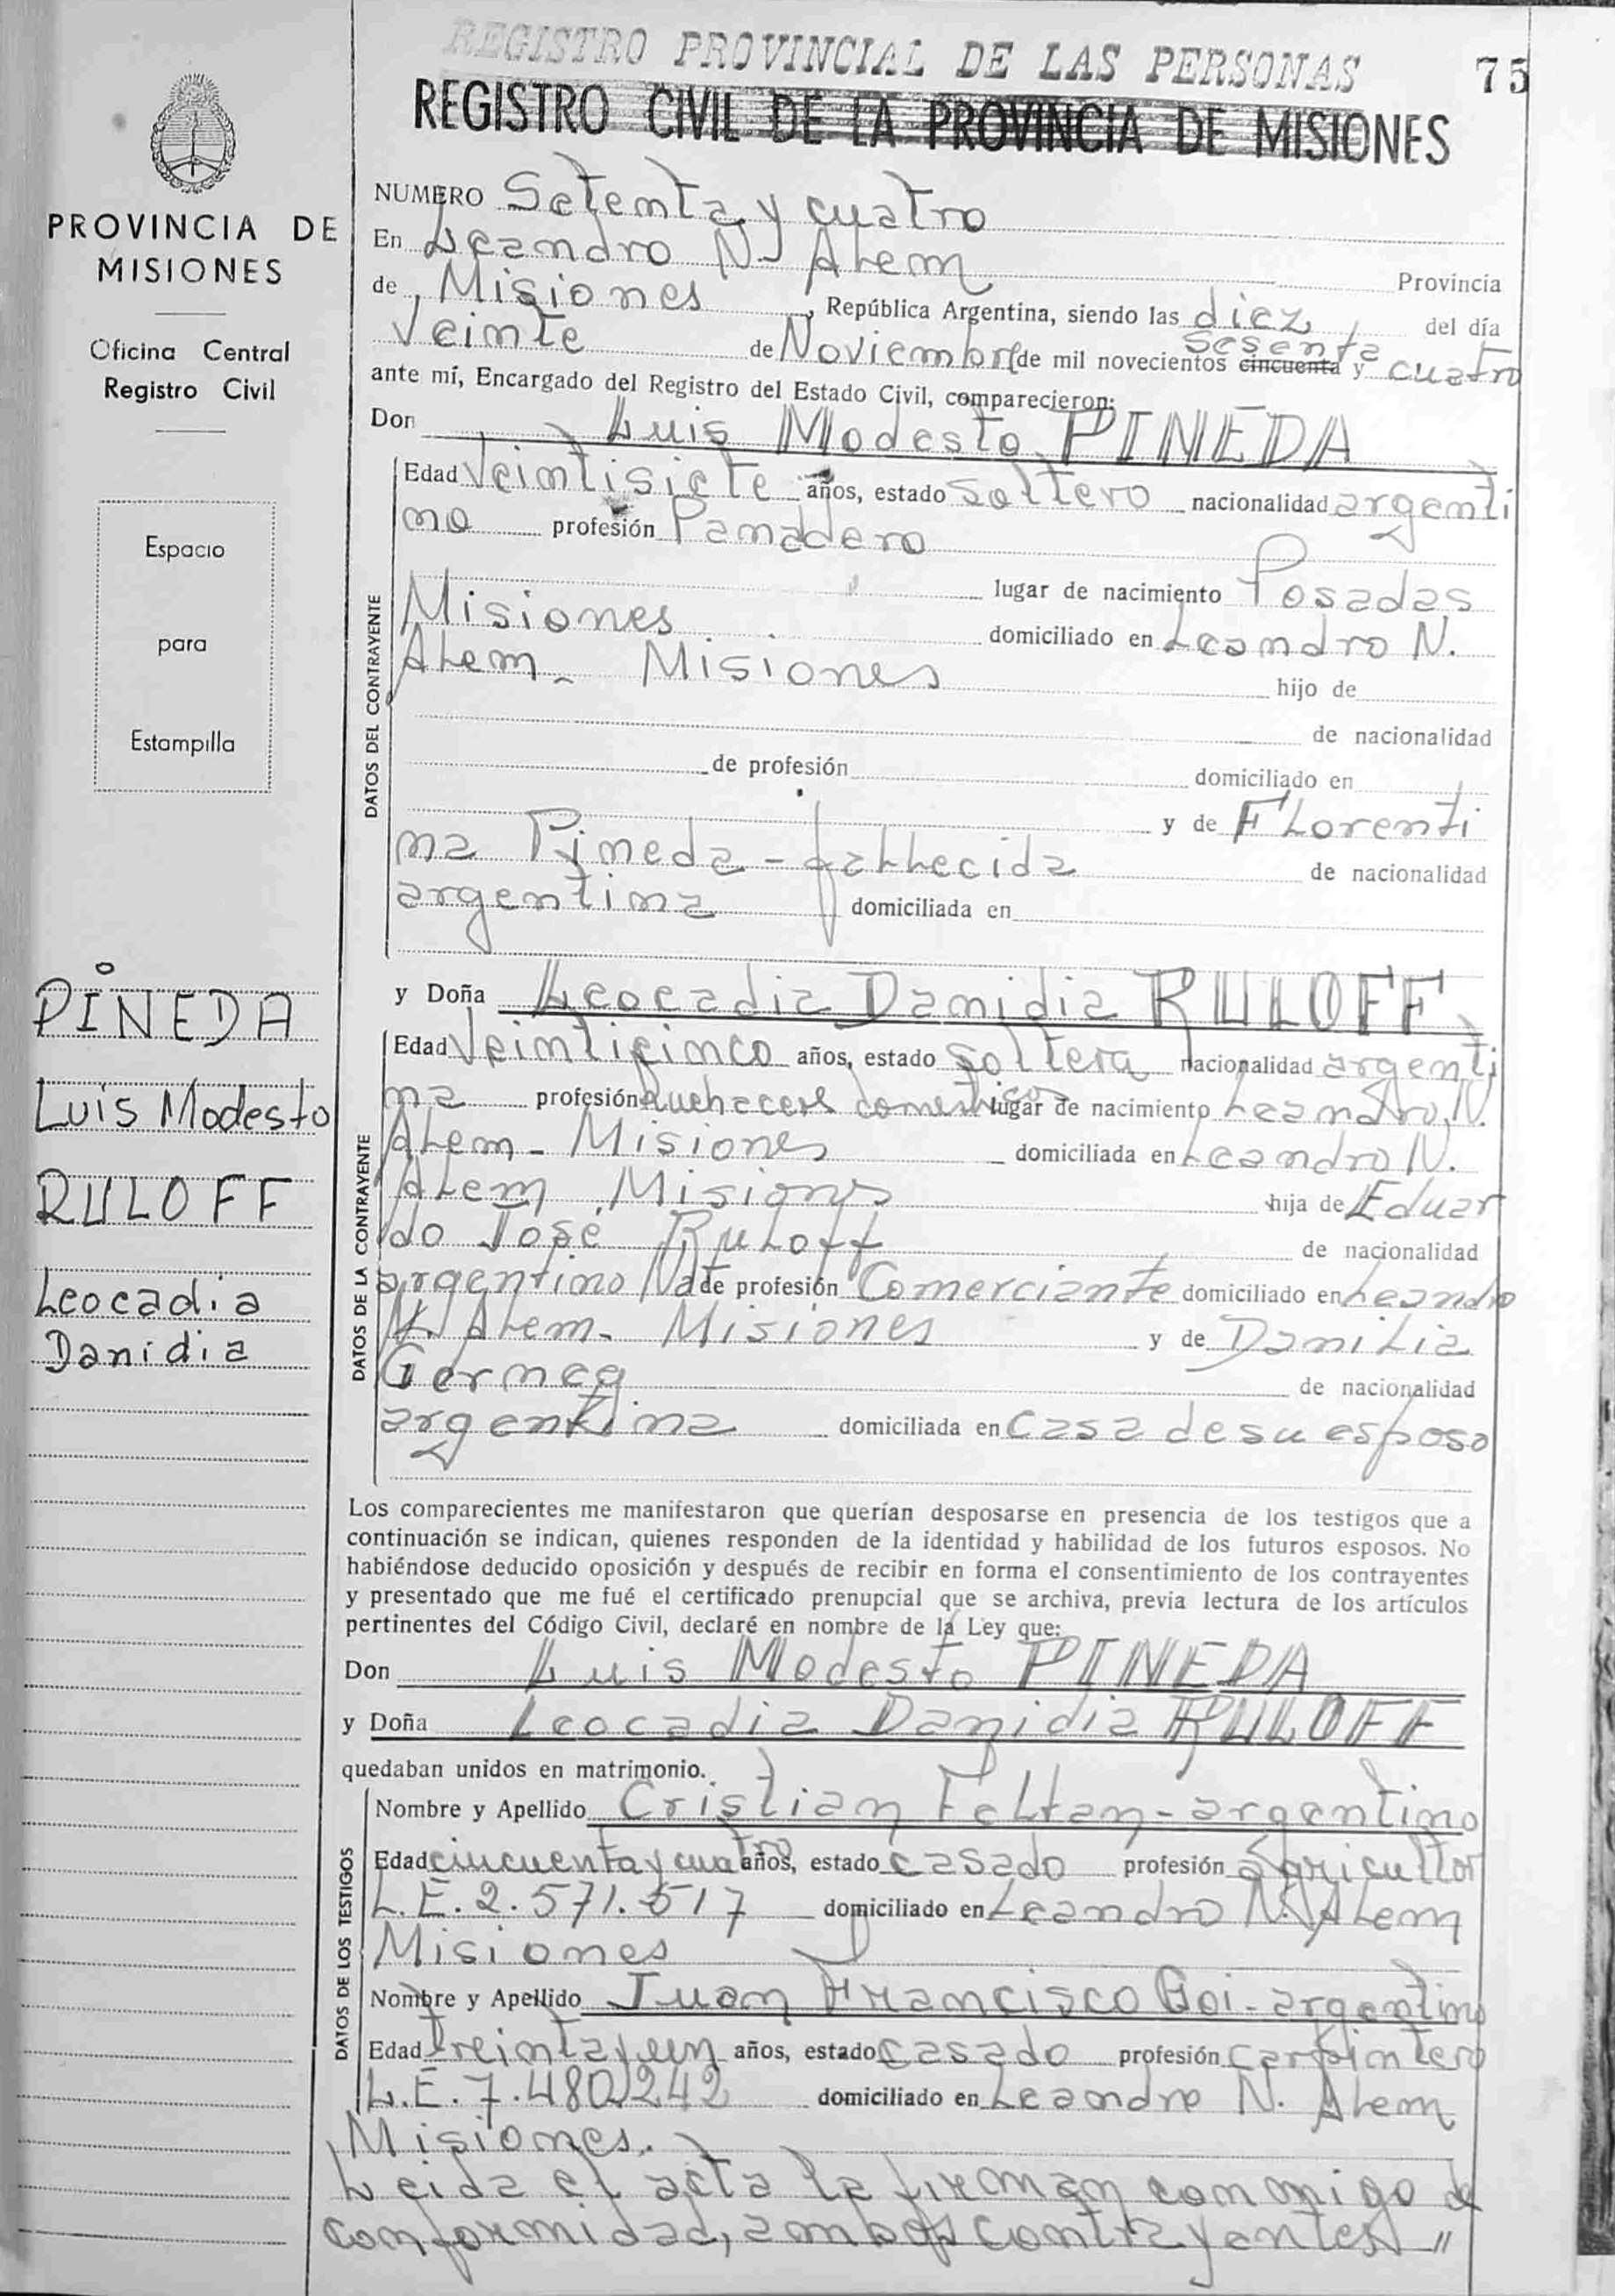 REGISTRO PROVINCIAL DE LAS PERSONAS
75
REGISTRO CIVIL DE LA PROVINCIA DE MISIONES
PROVINCIA DE
MISIONES
Oficina Central
Registro Civil
Espacio
para
Estampilla
PINEDA
Luis Modesto
RULOFF
Leocadia
Danidia
NUMERO Setenta y cuatro
En Leandro N. Alem Provincia
de Misiones, República Argentina, siendo las diez del día
Veinte de Noviembre de mil novecientos cincuenta sesenta y cuatro
ante mí, Encargado del Registro del Estado Civil, comparecieron:
Don Luis Modesto PINEDA
DATOS DEL CONTRAYENTE
Edad Veintisiete años, estado soltero nacionalidad argenti
no profesión Panadero
lugar de nacimiento Posadas
Misiones domiciliado en Leandro N.
Alem - Misiones hijo de
de nacionalidad
de profesión domiciliado en
y de Florenti
na Pineda - fallecida de nacionalidad
argentina domiciliada en
y Doña Leocadia Danidia RULOFF
DATOS DE LA CONTRAYENTE
Edad Veinticinco años, estado soltera nacionalidad argenti
na profesión Quehaceres domesticos lugar de nacimiento Leandro N.
Alem - Misiones domiciliada en Leandro N.
Alem Misiones hija de Eduar
do José Ruloff de nacionalidad
argentino de profesión Comerciante domiciliado en Leandro
N. Alem - Misiones y de Danilia
de nacionalidad
argentina domiciliada en casa de su esposo
Los comparecientes me manifestaron que querían desposarse en presencia de los testigos que a
continuación se indican, quienes responden de la identidad y habilidad de los futuros esposos. No
habiéndose deducido oposición y después de recibir en forma el consentimiento de los contrayentes
y presentado que me fué el certificado prenupcial que se archiva, previa lectura de los artículos
pertinentes del Código Civil, declaré en nombre de la Ley que:
Don Luis Modesto PINEDA
y Doña Leocadia Danidia RULOFF
quedaban unidos en matrimonio.
DATOS DE LOS TESTIGOS
Nombre y Apellido Cristian Feltan - argentino
Edad cincuenta y cuatro años, estado casado profesión agricultor
L.E. 2.571.517 domiciliado en Leandro N. Alem
Misiones
Nombre y Apellido Juan Francisco Goi - argentino
Edad treinta y un años, estado casado profesión carpintero
L.E. 7.480.242 domiciliado en Leandro N. Alem
Misiones.
Leida el acta la firman conmigo de
conformidad, ambos contrayentes "